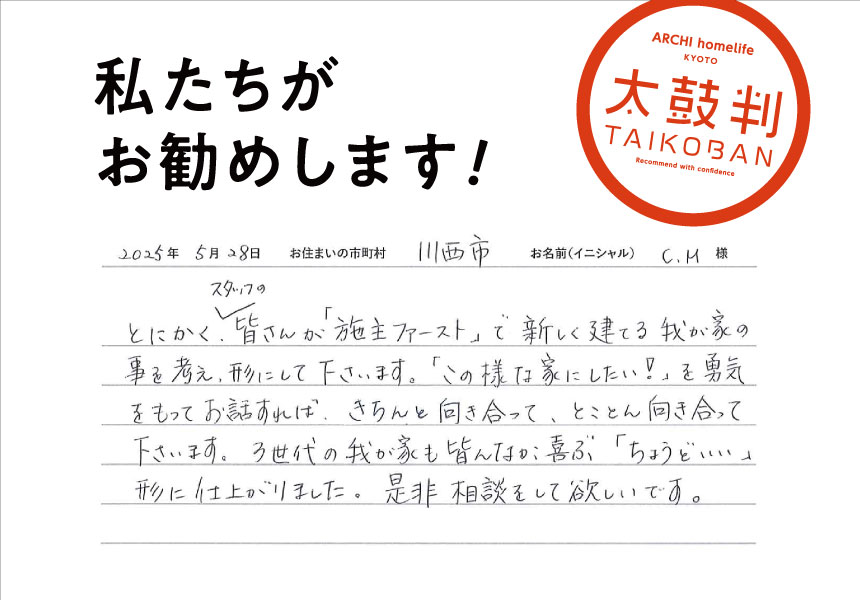 私たちが
お勧めします！
ARCHI homelife
KYOTO
太鼓判
TAIKOBAN
Recommend with confidence
2025年 5月 28日 お住まいの市町村 川西市 お名前（イニシャル） C.M 様
スタッフの
とにかく、皆さんが「施主ファースト」で新しく建てる我が家の
事を考え、形にして下さいます。「この様な家にしたい！」を勇気
をもってお話すれば、きちんと向き合って、とことん向き合って
下さいます。3世代の我が家も皆んなが喜ぶ「ちょうどいい」
形に仕上がりました。是非相談をして欲しいです。